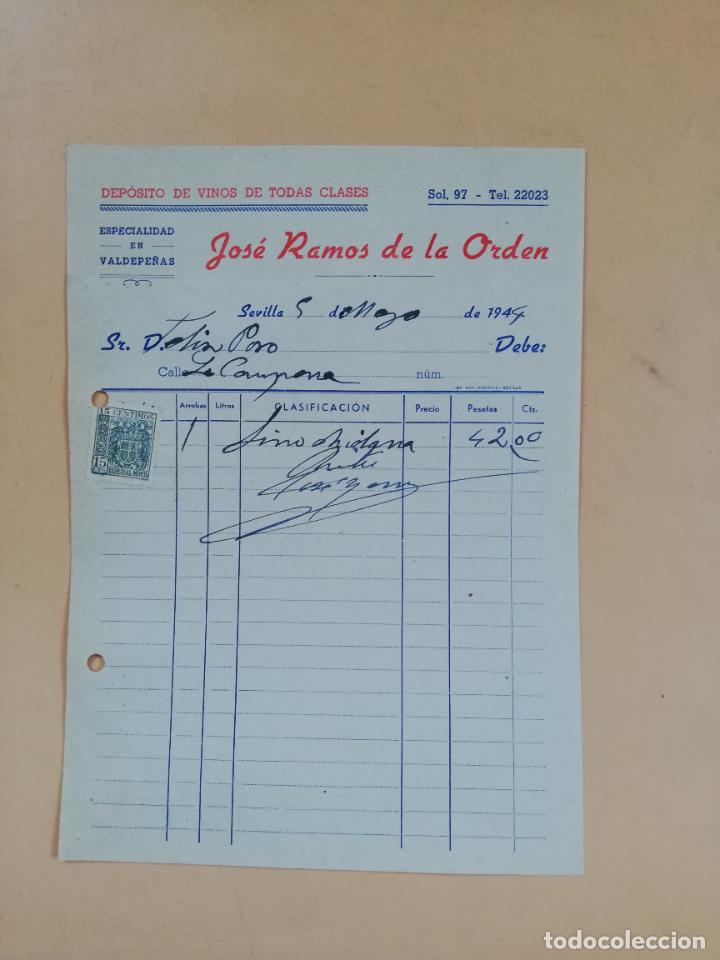 DEPÓSITO DE VINOS DE TODAS CLASES
Sol, 97 - Tel. 22023
ESPECIALIDAD
EN
VALDEPEÑAS
José Ramos de la Orden
Sevilla 5 de Mayo de 1944
Sr. D. Felix Poro Debe:
Calle La Campana núm.
Arrobas Litros CLASIFICACIÓN Precio Pesetas Cts.
15 CENTIMOS
15 ESPECIAL MOVIL
1 42,00
todocoleccion
todocoleccion.net